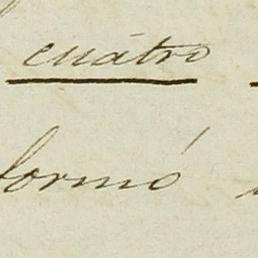 cuátro
formó